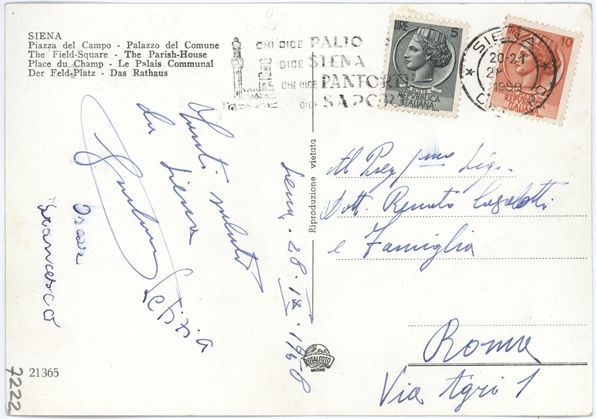 SIENA
Piazza del Campo - Palazzo del Comune
The Field-Square - The Parish-House
Place du Champ - Le Palais Communal
Der Feld-Platz - Das Rathaus
CHI DICE PALIO
DICE SIENA
CHI DICE PANTORTI
DICE SAPORI
LIRE 5
POSTE
REPUBBLICA
ITALIANA
10
SIENA
20-21
1958
Riproduzione vietata
Siena, 28. IX. 1958
saluti
da Siena
Letizia
Francesco
Al Preg.mo Sig.
Dott. Renato
e Famiglia
Roma
Via Agri 1
ROTALFOTO
MILANO
21365
7222